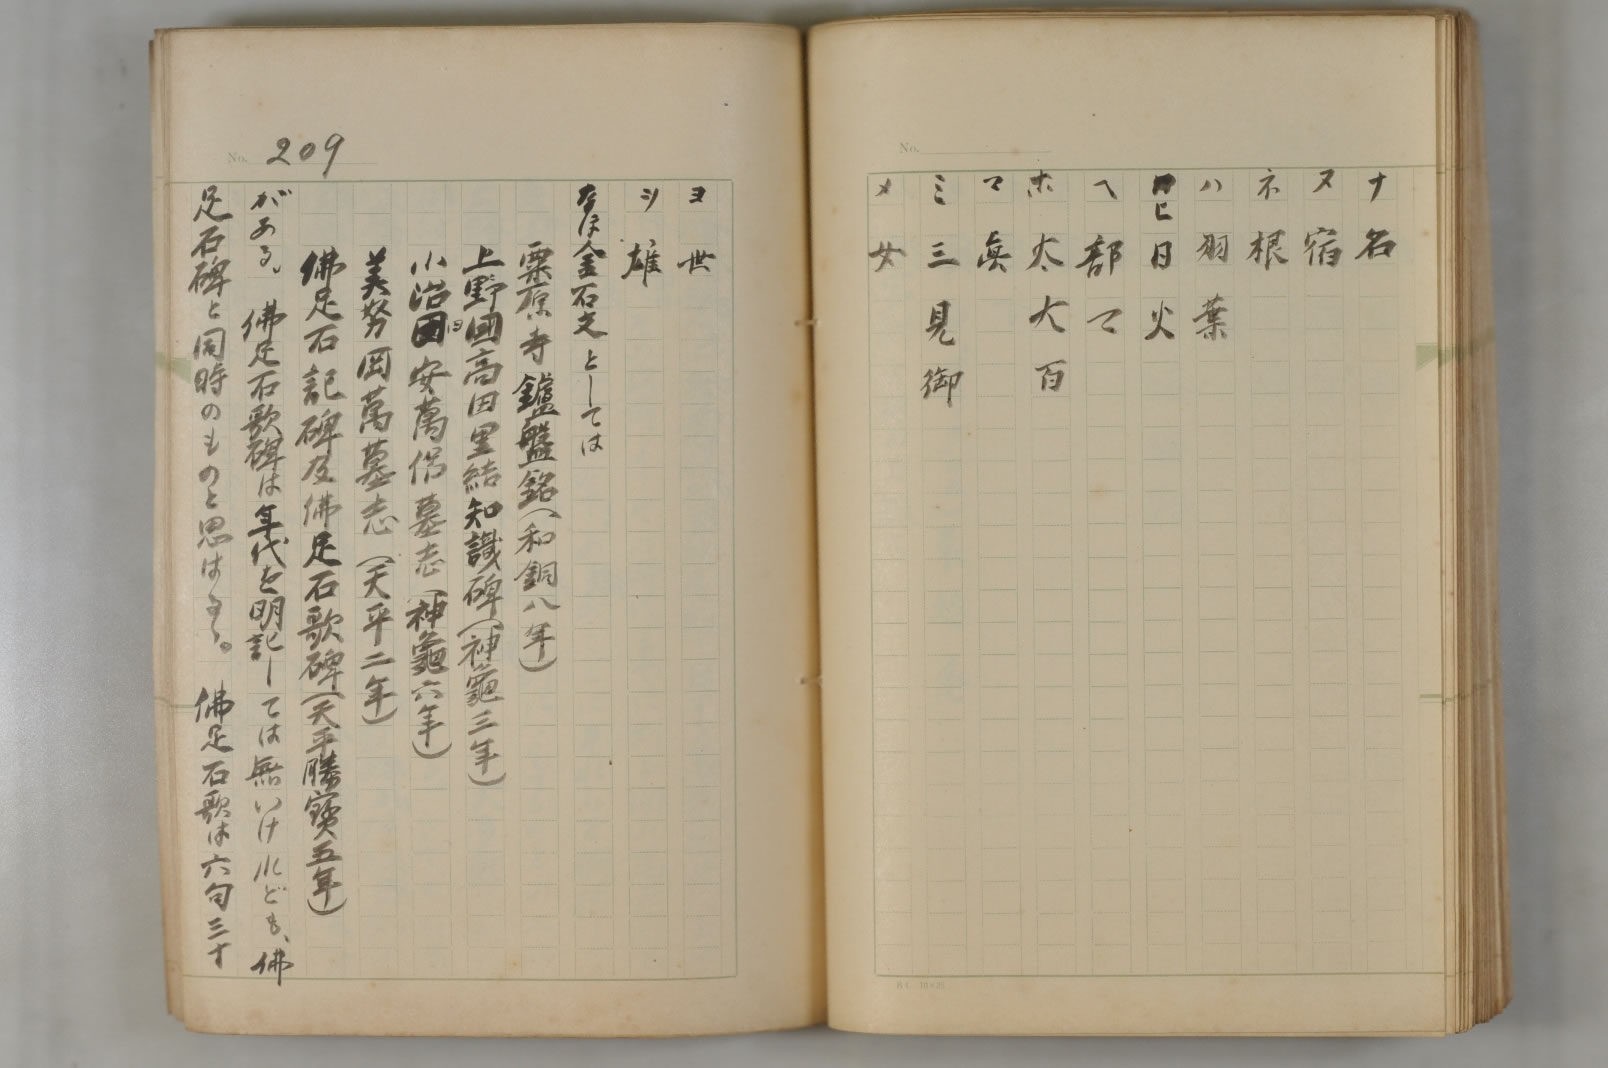 No.
ナ 名
ヌ 宿
ネ 根
ハ 羽 葉
ヒ 日 火
ヘ 部 マ
ホ 太 大 百
マ 眞
ミ 三 見 御
メ 女
No. 209
ヨ 世
シ 雄
なほ金石文としては
粟原寺鑪盤銘(和銅八年)
上野國高田里結知識碑(神龜三年)
小治田安萬侶墓志(神龜六年)
美努岡萬墓志(天平二年)
佛足石記碑及佛足石歌碑(天平勝寶五年)
がある。佛足石歌碑は年代を明記しては無いけれども、佛
足石碑と同時のものと思はるゝ。佛足石歌は六句三十